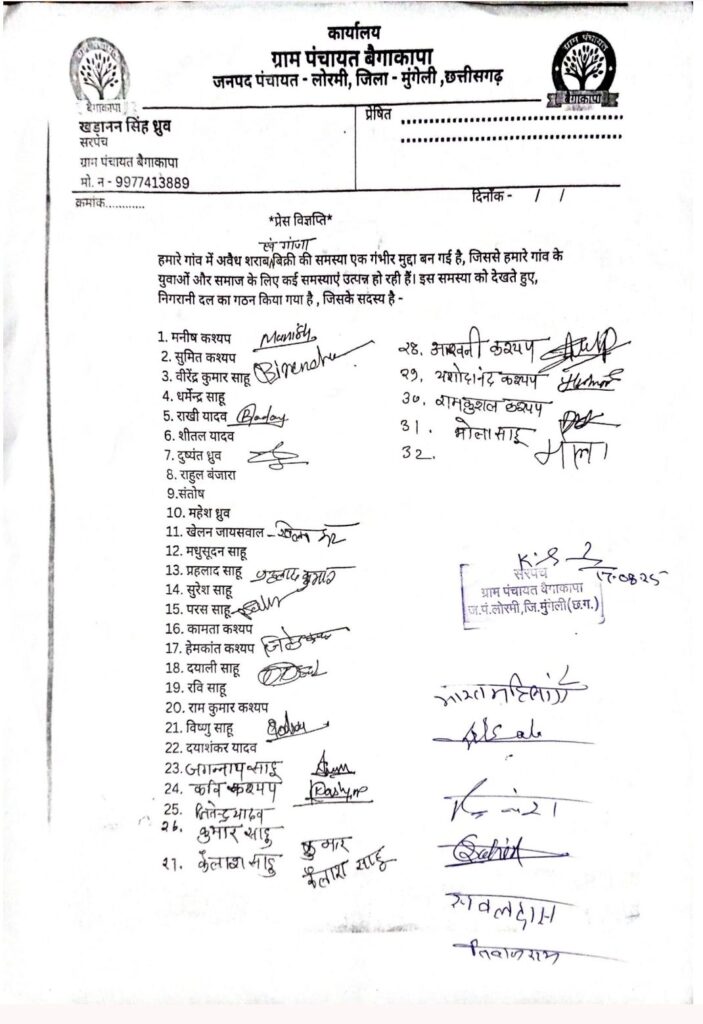 कार्यालय
ग्राम पंचायत बैगाकापा
जनपद पंचायत - लोरमी, जिला - मुंगेली ,छत्तीसगढ़
बैगाकापा
ग्राम पंचायत
बैगाकापा
खड़ानन सिंह ध्रुव
सरपंच
ग्राम पंचायत बैगाकापा
मो. न - 9977413889
प्रेषित ..............................
..............................
क्रमांक............
दिनाँक - / /
*प्रेस विज्ञप्ति*
एवं गांजा
हमारे गांव में अवैध शराब बिक्री की समस्या एक गंभीर मुद्दा बन गई है, जिससे हमारे गांव के
युवाओं और समाज के लिए कई समस्याएं उत्पन्न हो रही हैं। इस समस्या को देखते हुए,
निगरानी दल का गठन किया गया है , जिसके सदस्य है -
1. मनीष कश्यप Manish
2. सुमित कश्यप
3. वीरेंद्र कुमार साहू Birendra
4. धर्मेन्द्र साहू
5. राखी यादव
6. शीतल यादव
7. दुष्यंत ध्रुव
8. राहुल बंजारा
9.संतोष
10. महेश ध्रुव
11. खेलन जायसवाल -
12. मधुसूदन साहू
13. प्रहलाद साहू प्रहलाद कुमार
14. सुरेश साहू
15. परस साहू
16. कामता कश्यप
17. हेमकांत कश्यप
18. दयाली साहू
19. रवि साहू
20. राम कुमार कश्यप
21. विष्णु साहू
22. दयाशंकर यादव
23. जगन्नाथ साहू
24. कवि कश्यप Kashyap
25. जितेन्द्र यादव
26. कुमार साहू कुमार
27. कैलाश साहू कैलाश साहू
२८. कश्यप
२९. यशोदानंद कश्यप
३०. रामकुशल कश्यप
31. भोला साहू
32. भोला
17-08-25
सरपंच
ग्राम पंचायत बैगाकापा
ज.पं.लोरमी,जि.मुंगेली(छ.ग.)